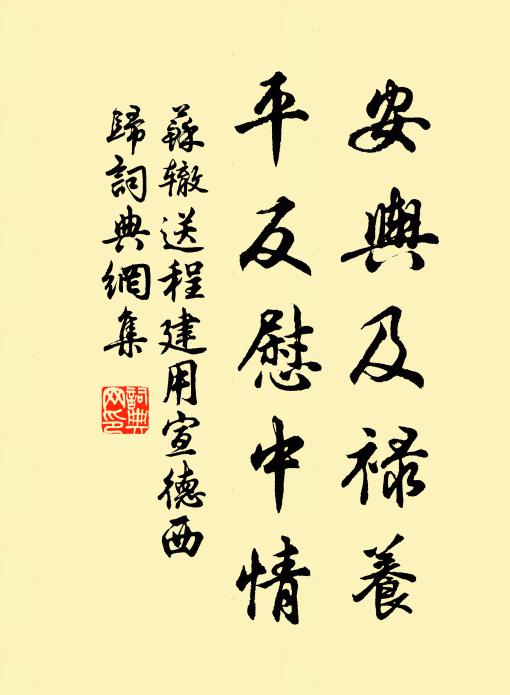 安輿及禄養
平反慰中情
蘇辙送程建用宣德西
歸詞典網集
詞典
网印